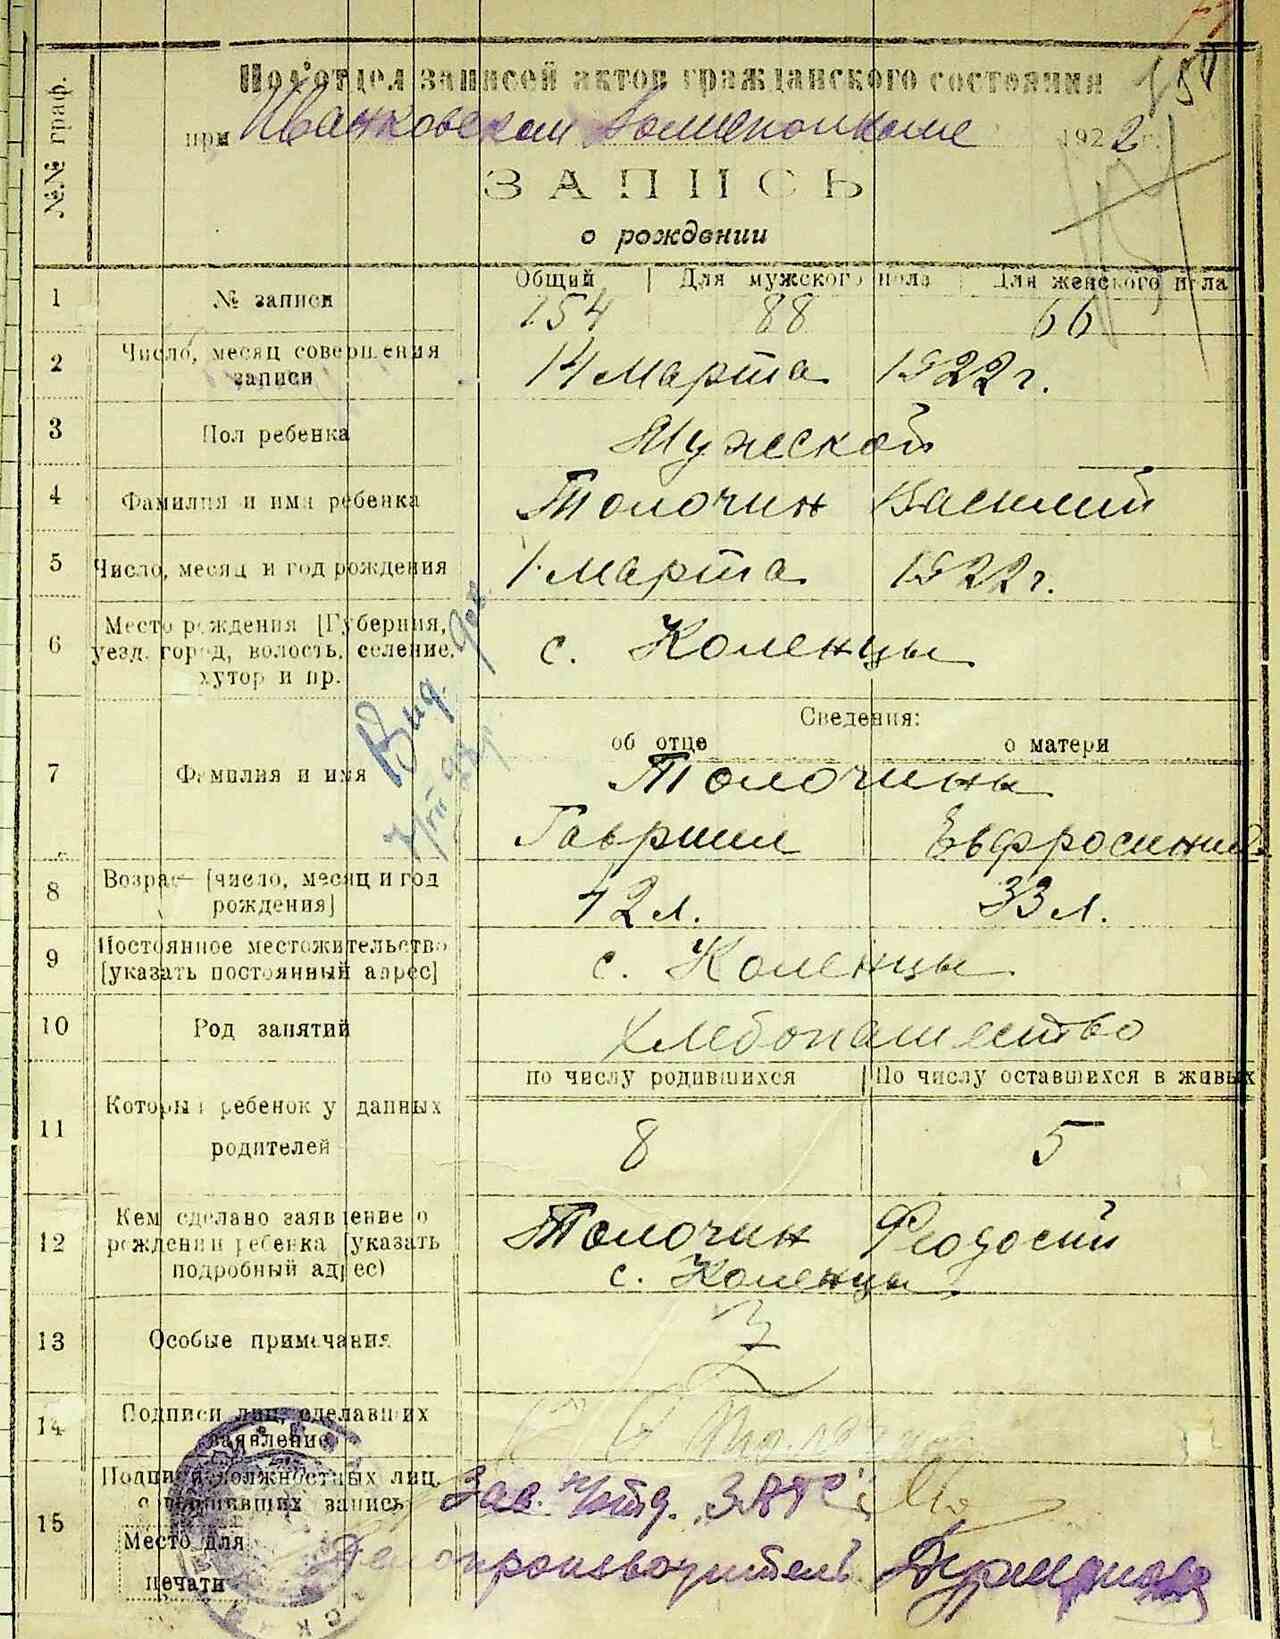 Подотдел записей актов гражданского состояния
при Иванковском Волисполкоме 1922 г.
№№ граф.
ЗАПИСЬ
о рождении
Общий Для мужского пола Для женского пола
1 № записи 154 88 66
2 Число, месяц совершения
записи 14 Марта 1922 г.
3 Пол ребенка Мужской
4 Фамилия и имя ребенка Толочин Василий
5 Число, месяц и год рождения 1 Марта 1922 г.
6 Место рождения [Губерния,
уезд, город, волость, селение,
хутор и пр. с. Коленцы
Сведения:
об отце о матери
7 Фамилия и имя Толочины
Гавриил Евфросиния
8 Возраст [число, месяц и год
рождения] 42 л. 33 л.
9 Постоянное местожительство
[указать постоянный адрес] с. Коленцы
10 Род занятий Хлебопашество
по числу родившихся По числу оставшихся в живых
11 Который ребенок у данных
родителей 8 5
12 Кем сделано заявление о
рождении ребенка [указать
подробный адрес) Толочин Феодосий
с. Коленцы
13 Особые примечания
14 Подписи лиц, сделавших
заявление Толочин
15 Подписи должностных лиц,
совершивших запись Зав. П/отд. ЗАГС
Место для
печати Делопроизводитель
Выд. док.